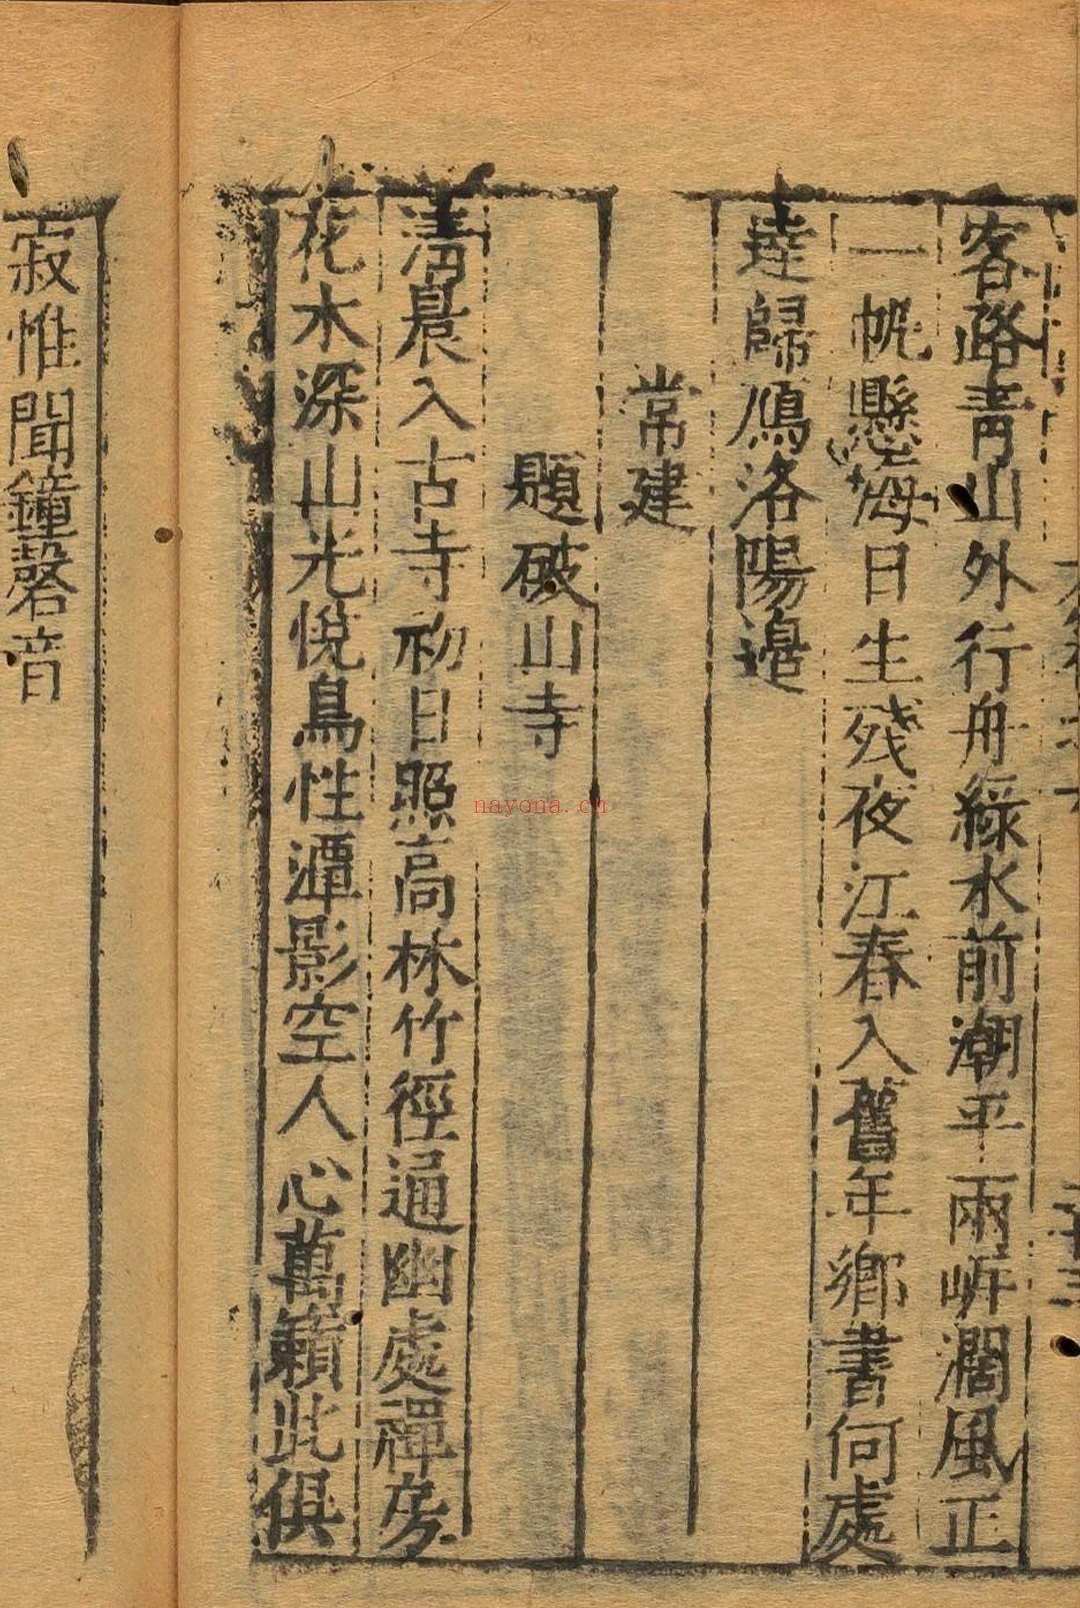 客路青山外行舟綠水前潮平兩岍濶風正
一帆懸海日生残夜江春入舊年鄉書何處
達歸鴈洛陽邉
常建
題破山寺
清晨入古寺初日照高林竹徑通幽處禪房
花木深山光悅鳥性潭影空人心萬籟此俱
寂惟聞鐘磬音
nayona.cn